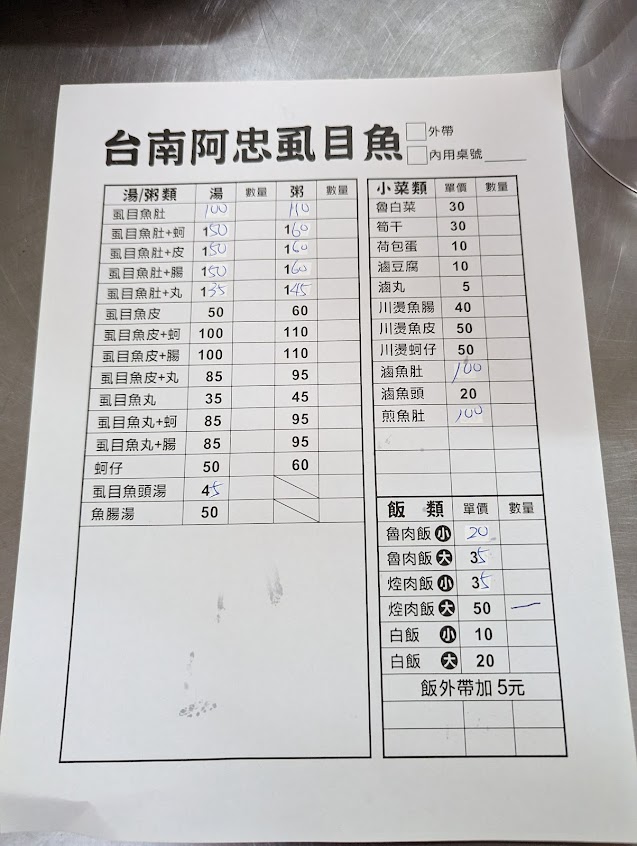 台南阿忠虱目魚
外帶
內用桌號
湯/粥類 湯 數量 粥 數量
虱目魚肚 100 110
虱目魚肚+蚵 150 160
虱目魚肚+皮 150 160
虱目魚肚+腸 150 160
虱目魚肚+丸 135 145
虱目魚皮 50 60
虱目魚皮+蚵 100 110
虱目魚皮+腸 100 110
虱目魚皮+丸 85 95
虱目魚丸 35 45
虱目魚丸+蚵 85 95
虱目魚丸+腸 85 95
蚵仔 50 60
虱目魚頭湯 45
魚腸湯 50
小菜類 單價 數量
魯白菜 30
筍干 30
荷包蛋 10
滷豆腐 10
滷丸 5
川燙魚腸 40
川燙魚皮 50
川燙蚵仔 50
滷魚肚 100
滷魚頭 20
煎魚肚 100
飯 類 單價 數量
魯肉飯 小 20
魯肉飯 大 35
焢肉飯 小 35
焢肉飯 大 50 一
白飯 小 10
白飯 大 20
飯外帶加 5元